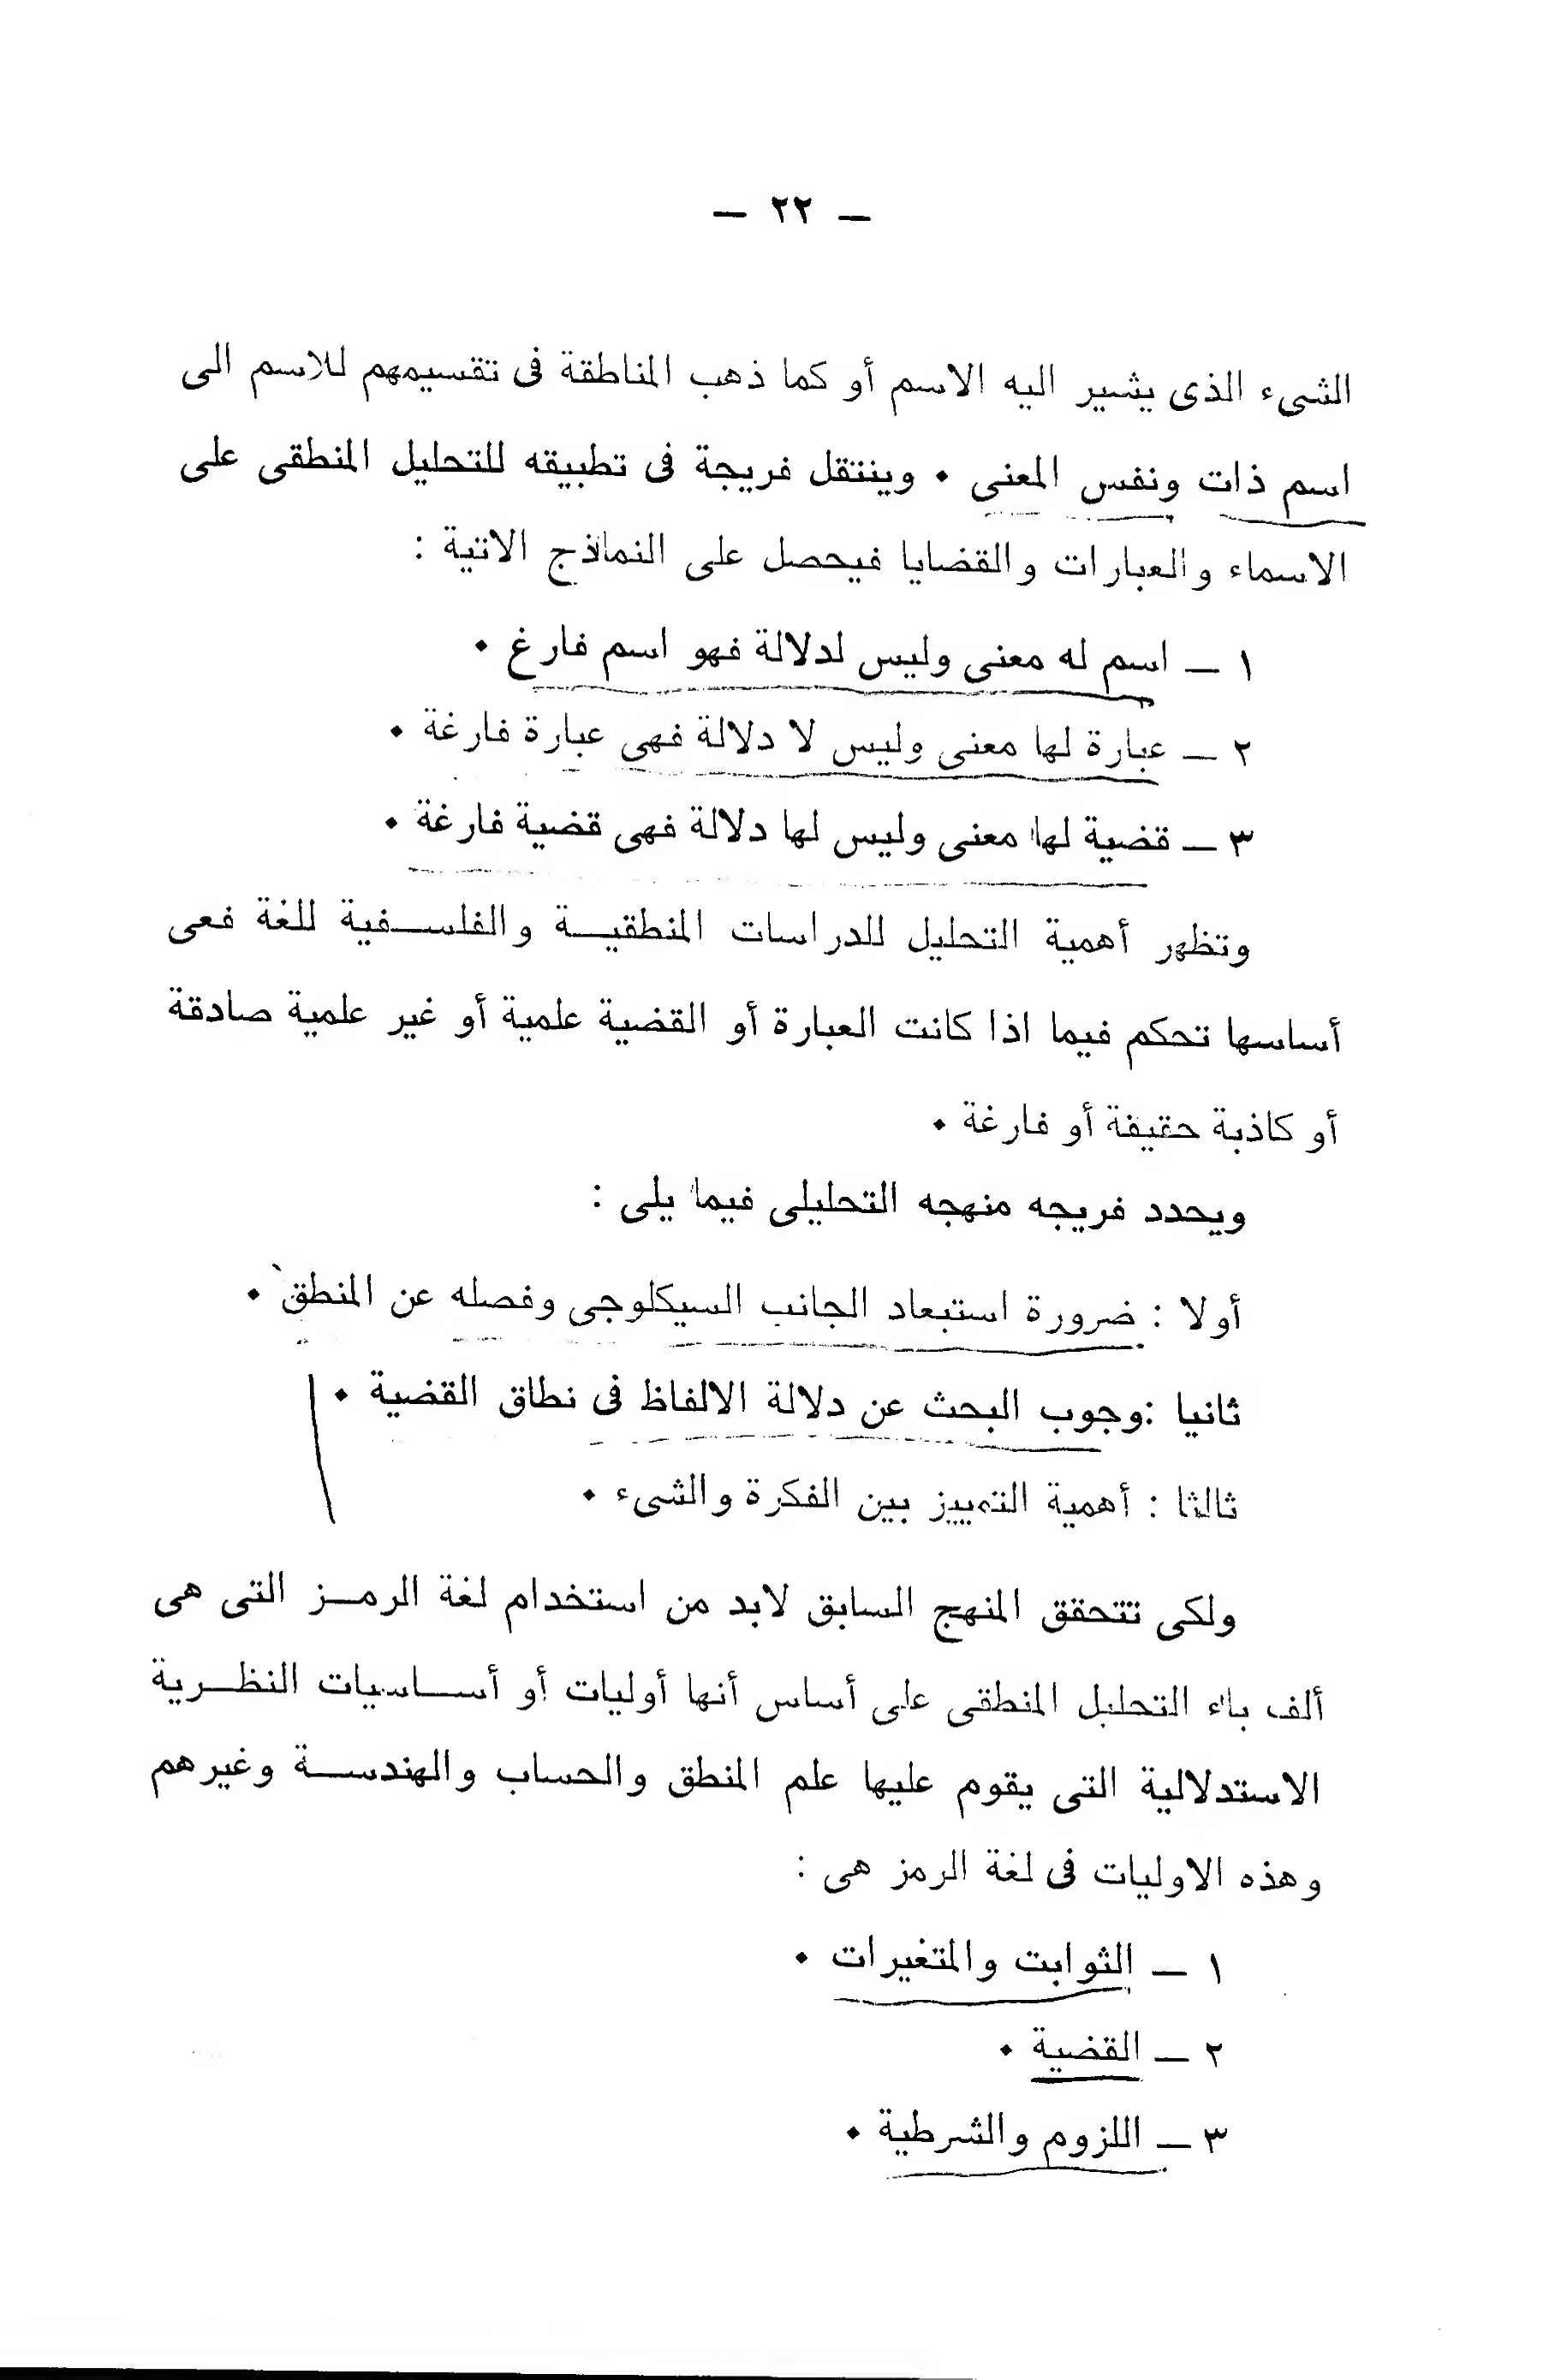 — ٢٢ —
الشىء الذى يشير اليه الاسم أو كما ذهب المناطقة فى تقسيمهم للاسم الى
اسم ذات ونفس المعنى . وينتقل فريجة فى تطبيقه للتحليل المنطقى على
الاسماء والعبارات والقضايا فيحصل على النماذج الاتية :
١ — اسم له معنى وليس لدلالة فهو اسم فارغ .
٢ — عبارة لها معنى وليس لا دلالة فهى عبارة فارغة .
٣ — قضية لها معنى وليس لها دلالة فهى قضية فارغة .
وتظهر أهمية التحليل للدراسات المنطقيـــة والفلســفية للغة فعى
أساسها تحكم فيما اذا كانت العبارة أو القضية علمية أو غير علمية صادقة
أو كاذبة حقيقة أو فارغة .
ويحدد فريجه منهجه التحليلى فيما يلى :
أولا : ضرورة استبعاد الجانب السيكلوجى وفصله عن المنطق .
ثانيا :وجوب البحث عن دلالة الالفاظ فى نطاق القضية .
ثالثا : أهمية التمييز بين الفكرة والشىء .
ولكى تتحقق المنهج السابق لابد من استخدام لغة الرمــز التى هى
ألف باء التحليل المنطقى على أساس أنها أوليات أو أســاسيات النظــرية
الاستدلالية التى يقوم عليها علم المنطق والحساب والهندســـة وغيرهم
وهذه الاوليات فى لغة الرمز هى :
١ — الثوابت والمتغيرات .
٢ — القضية .
٣ — اللزوم والشرطية .